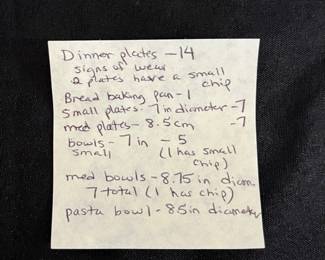 Dinner plates - 14
signs of wear
2 plates have a small
chip
Bread baking pan - 1
small plates - 7 in diameter - 7
med plates - 8.5 cm - 7
bowls - 7 in - 5
small (1 has small
chip)
med bowls - 8.75 in diam.
7 total (1 has chip)
pasta bowl - 85 in diameter